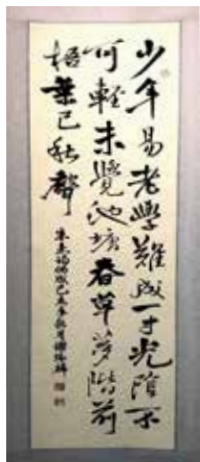 少年易老學難成一寸光陰不
可輕未覺池塘春草夢階前
梧葉已秋聲
朱熹詩偶成己亥年